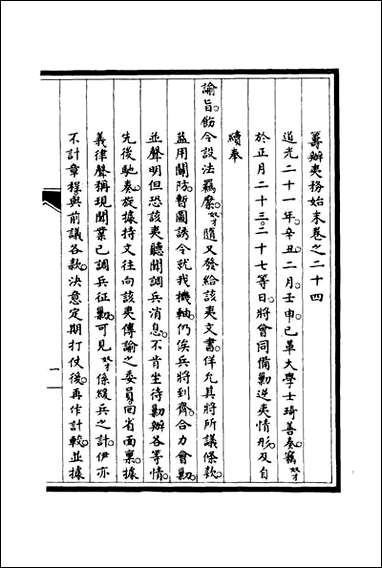 籌辦夷務始末卷之二十四
道光二十一年辛丑二月壬申已革大學士琦善奏竊奴才
於正月二十三二十七等日將會同備勦逆夷情形及自
續奉
諭旨飭令設法羈縻奴才隨又發給該夷文書佯允其將所議條款
蓋用關防暫圖誘令就我機軸仍俟兵將到齊合力會勦
並聲明但恐該夷聽聞調兵消息不肯坐待勦辦各等情
先後馳奏旋據持文往向該夷傳諭之委員回省面稟據
義律聲稱現聞業已調兵征勦可見奴才係緩兵之計伊亦
不計章程與前議各款決意定期打仗後再作計較並據
一